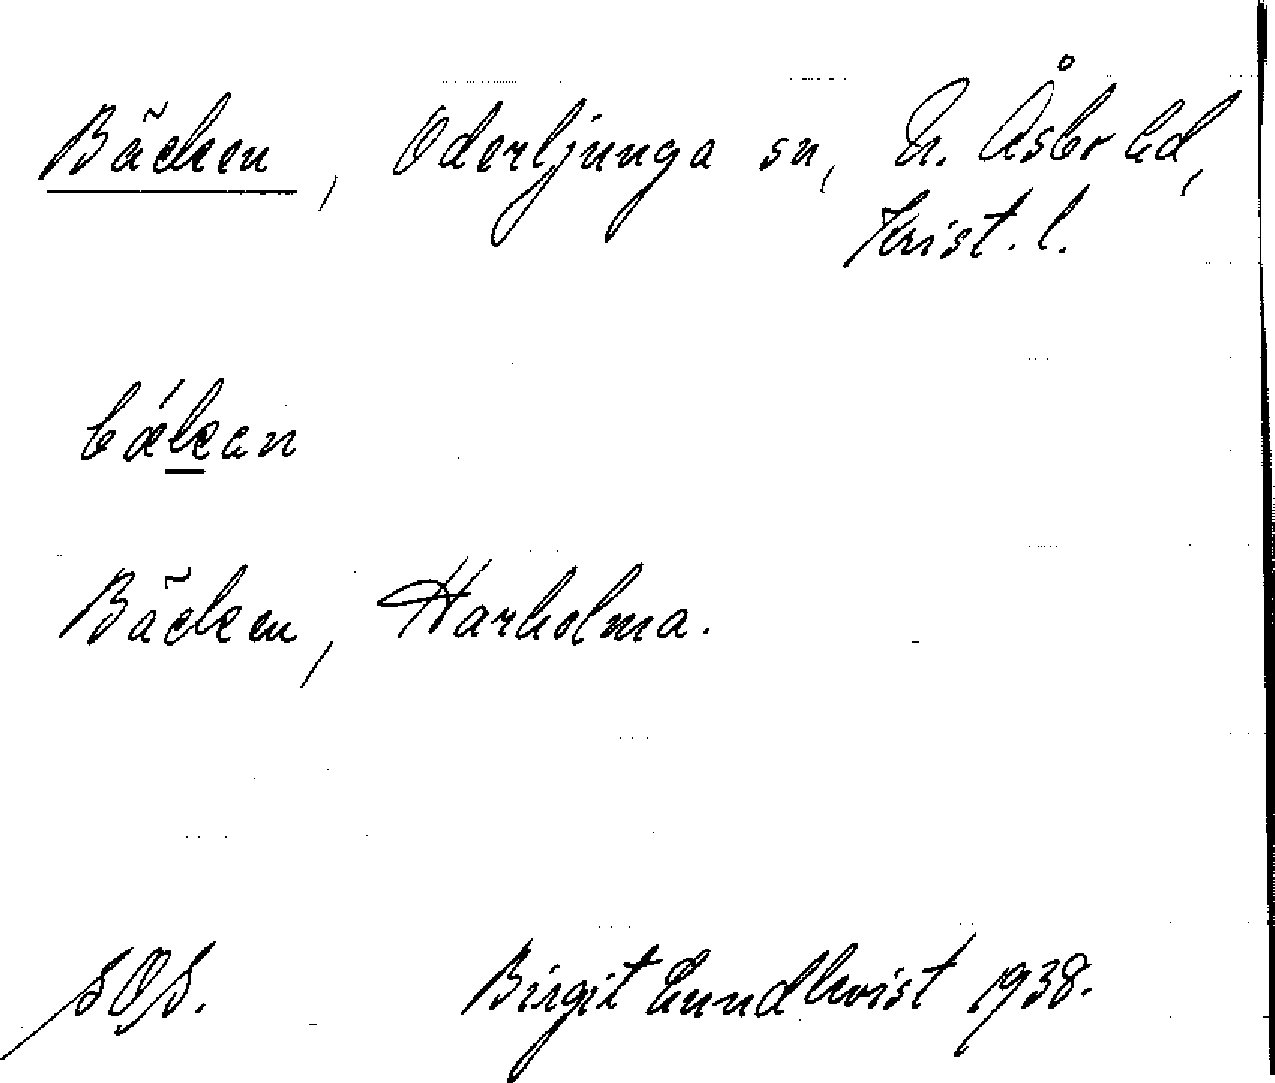 Bäcken, Oderljunga sn, N. Åsbo hd,
Krist. l.
bǽkan
Bäcken, Harholma.
SOS. Birgit Lundkvist 1938.